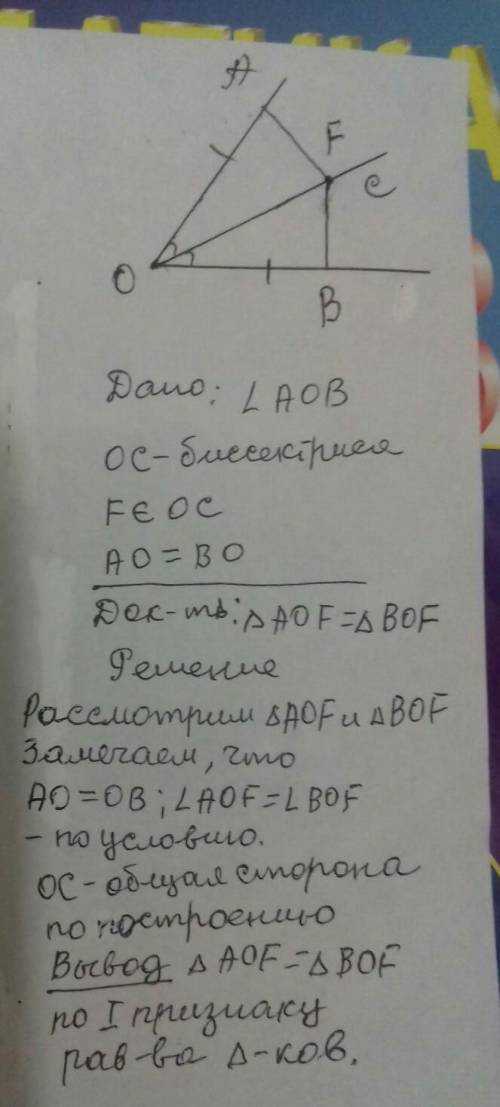 A
F
C
O
B
Дано: ∠AOB
OC - биссектриса
F∈OC
AO = BO
Док-ть: △AOF = △BOF
Решение
Рассмотрим △AOF и △BOF
Замечаем, что
AO = OB; ∠AOF = ∠BOF
- по условию.
OC - общая сторона
по построению
Вывод △AOF = △BOF
по I признаку
рав-ва △-ков.